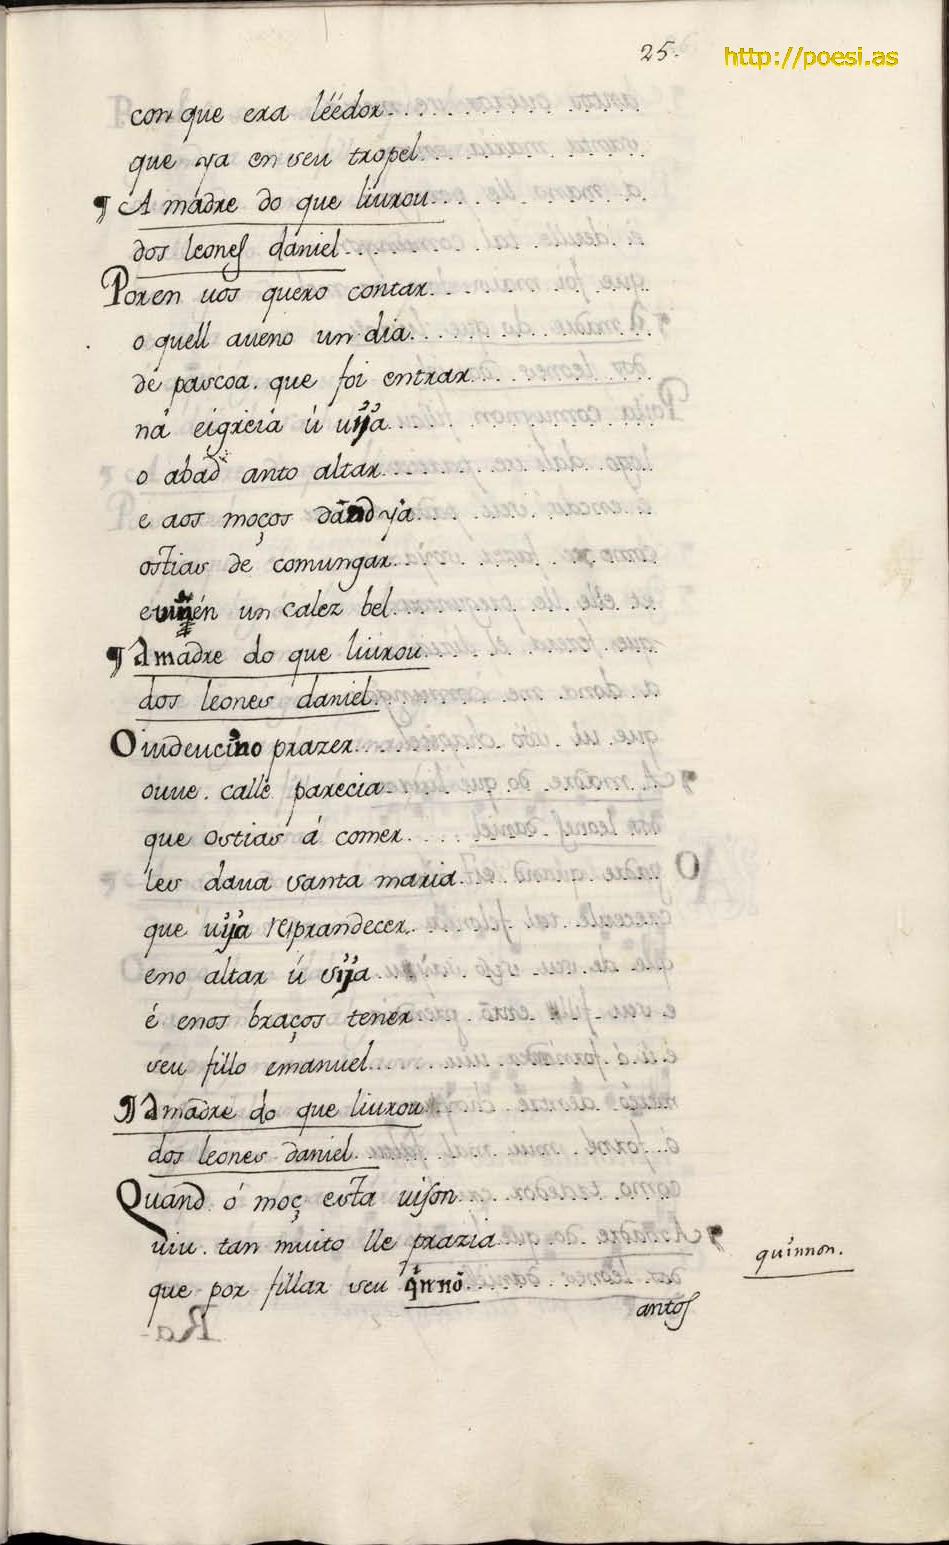 25.
http://poesi.as
con que era léédor
que ya en seu tropel
¶ A madre do que liurou
dos leones daniel
Poren uos quero contar
o quell aueno un dia
de pascoa. que foi entrar
na eigreia ú uija
o abad anto altar
e aos moços dãnd ya
ostias de comungar
e uĩ én un calez bel
¶ A madre do que liurou
dos leones daniel
O iudeucĩno prazer
ouue. calle parecia
que ostias á comer
les daua santa maria
que uija resprandecer
eno altar ú sija
é enos braços tener
seu fillo emanuel
¶ A madre do que liurou
dos leones daniel
Quand ó moç esta uison
uiu. tan muito lle prazia
que por fillar seu qinnõ
quinnon.
antos